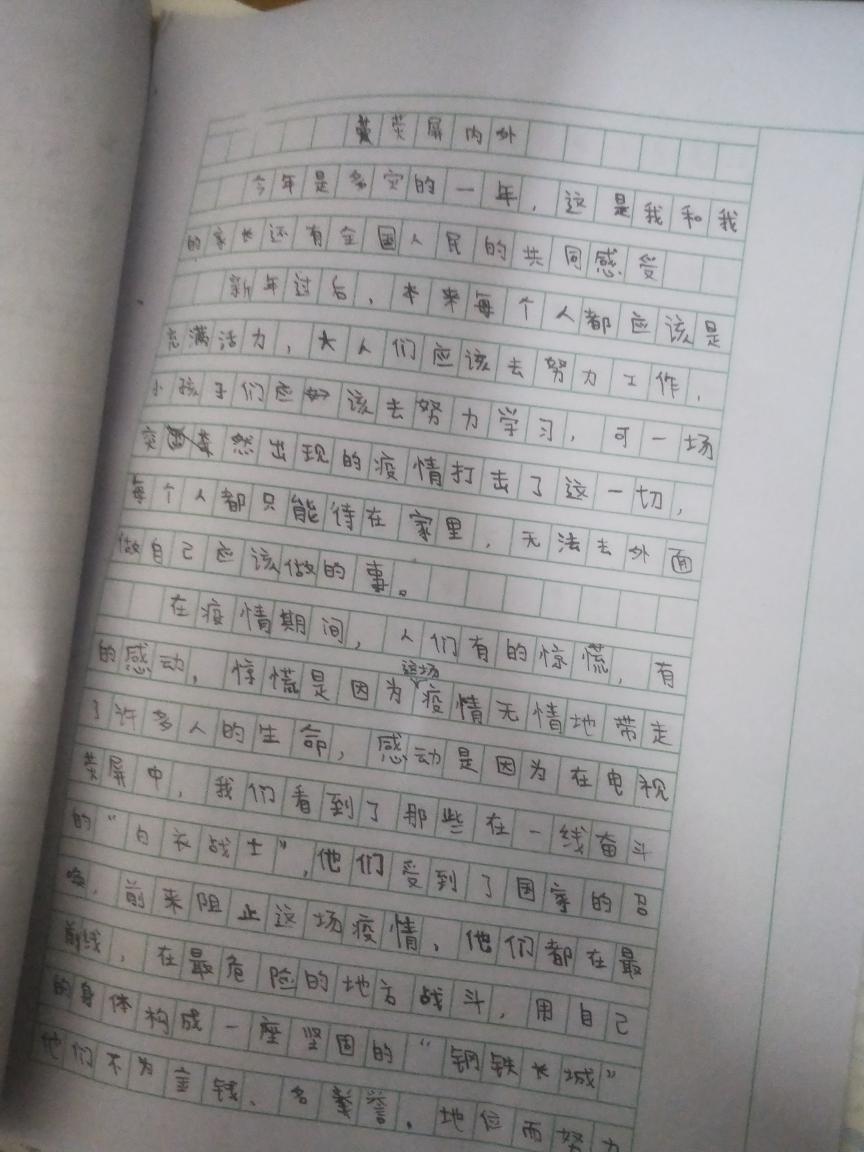 荧屏内外
今年是多灾的一年，这是我和我
的家长还有全国人民的共同感受
新年过后，本来每个人都应该是
充满活力，大人们应该去努力工作，
小孩子们应该去努力学习，可一场
突然出现的疫情打击了这一切，
每个人都只能待在家里，无法去外面
做自己应该做的事。
在疫情期间，人们有的惊慌，有
的感动，惊慌是因为这场疫情无情地带走
了许多人的生命，感动是因为在电视
荧屏中，我们看到了那些在一线奋斗
的“白衣战士”，他们受到了国家的召
唤，前来阻止这场疫情，他们都在最
前线，在最危险的地方战斗，用自己
的身体构成一座坚固的“钢铁长城”
他们不为金钱、名誉。地位而努力